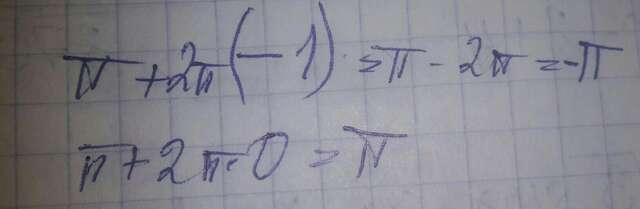 π+2π(-1)=π-2π=-π
π+2π·0=π